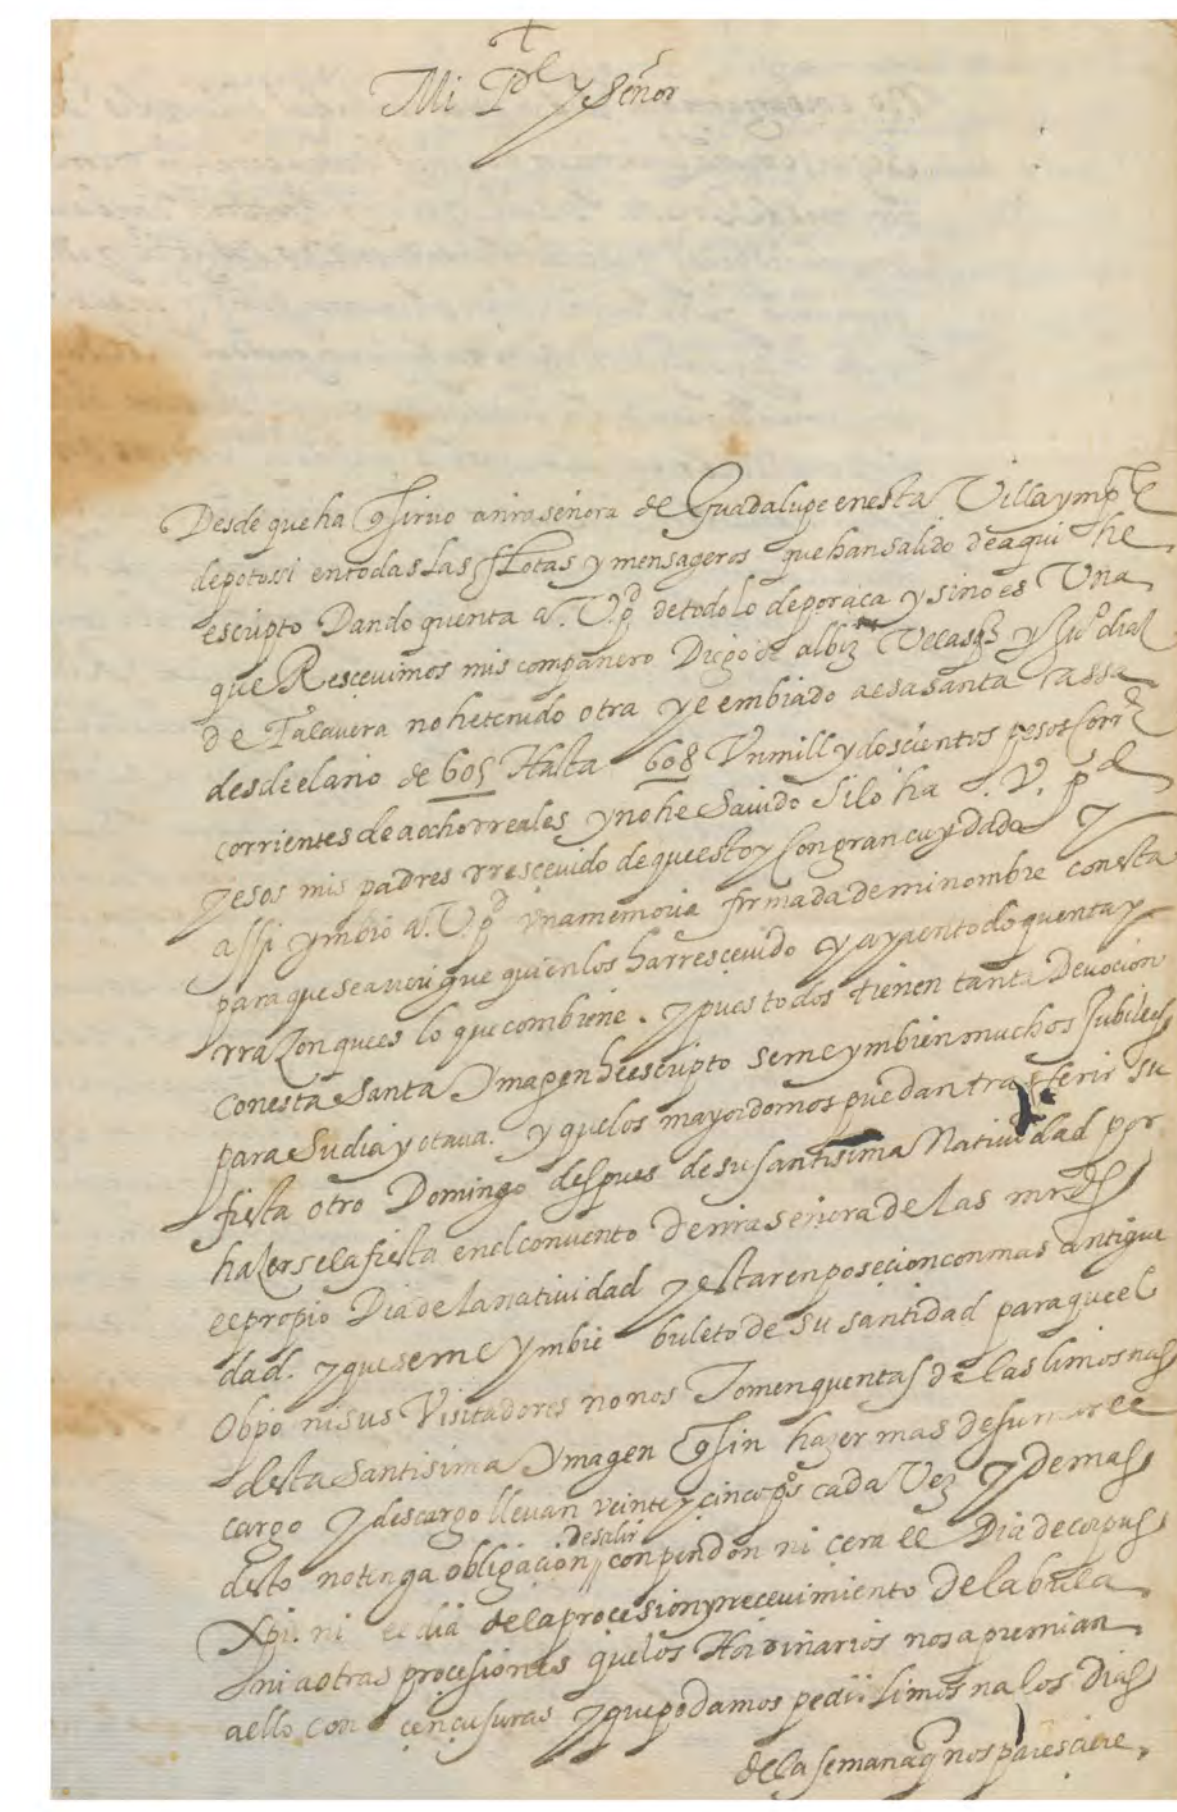 +
Mi Pe y Señor
Desde que ha q sirvo a nra señora de Guadalupe en esta Villa ymp
de potossi en todas las flotas y mensageros que han salido de aqui he
escripto Dando quenta a. V.p. de todo lo de por aca y sino es Una
que Rescevimos mis companero Diego de albiz y
De Talavera no he tenido otra y e embiado a esa santa cassa
desde el año de 605 Hasta 608 Un mill y doscientos pesos
corrientes de a ocho rreales y no he Savido Si lo ha . V. pd
y esos mis padres rrescevido de que estoy con gran cuydado y
assi ymbio a. V.pd una memoria firmada de mi nombre con esta
para que se averigue quien los ha rrescevido y aya en todo quenta y
rrazon que es lo que combiene. y pues todos tienen tanta Devocion
con esta Santa Ymagen he escripto se me ymbien muchos Jubileos
para Su dia y otava. y que los mayordomos puedan trasferir su
fiesta otro Domingo despues de su santisima Natividad por
hazerse la fiesta en el convento de nra señora de las mrds
el propio Dia de la natividad y estar en posecion con mas antigue
dad. y que se me Ymbie buleto de Su santidad para que el
Obpo ni sus Visitadores no nos Tomen quentas de las limosnas
desta Santisima Ymagen q sin hazer mas de sumar el
cargo y descargo llevan veinte y cinco ps cada Vez y demas
desto no tenga obligacion de salir con pendon ni cera el Dia de corpus
Xpi. ni el dia de la procesion y rrecevimiento de la bula
ni a otras procesiones que los Hordinarios nos apremian
a ello con censuras y que podamos pedir limosna los Dias
de la semana q nos paresciere.